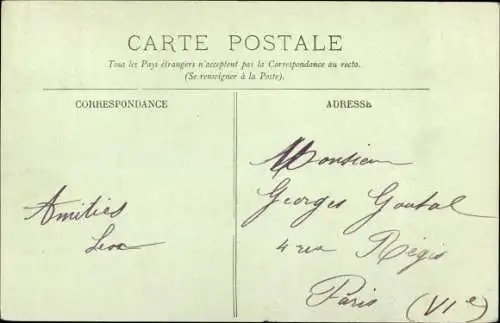 CARTE POSTALE
Tous les Pays étrangers n'acceptent pas la Correspondance au recto.
(Se renseigner à la Poste).
CORRESPONDANCE
ADRESSE
Amitiés
Leon
Monsieur
Georges Goutal
4 rue Régis
Paris (VIe)